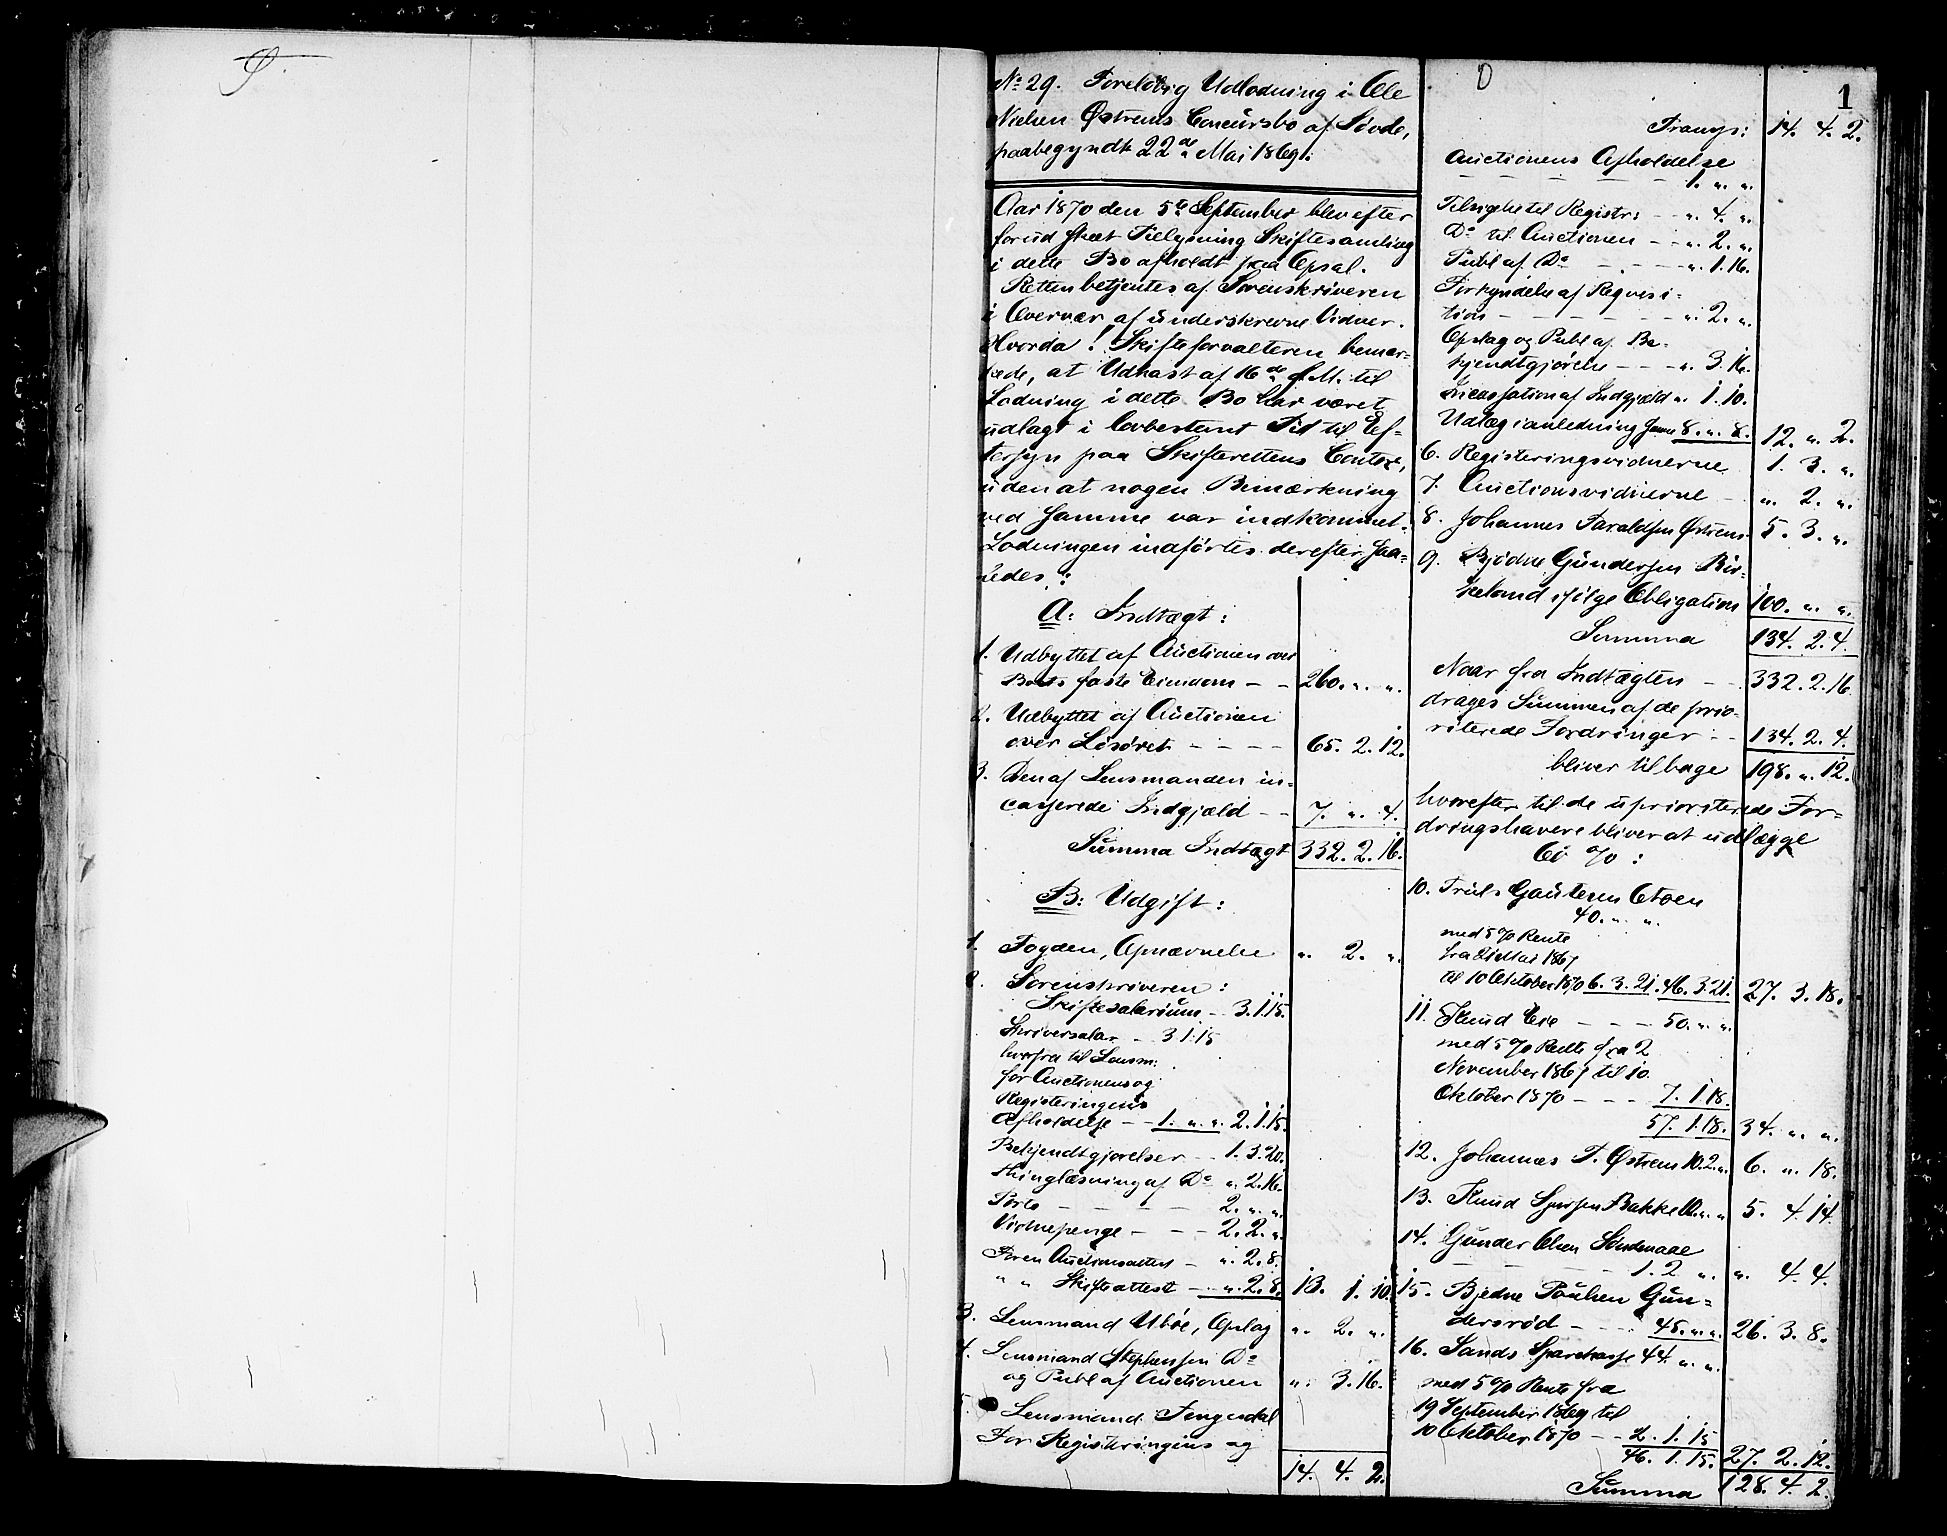 1
No 29. Foreløbig Udlodning i Ole
Nielsen Østrems Concursbo af Søvde,
paabegyndt 22de Mai 1869.
Aar 1870 den 5te September blev efter
forud skeet Tillysning Skiftesamling
i dette Bo afholdt paa Opsal.
Retten betjentes af Sorenskriveren
i Overvær af underskrevne Vidner.
Hvorda! Skifteforvalteren bemær-
kede, at Udkast af 16de f.M. til
Lodning i dette Bo har været
udlagt i lovbestemt Tid til Ef-
tersyn paa Skifterettens Contor,
uden at nogen Bemærkning
ved samme var indkommet.
Lodningen indførtes derefter saa-
ledes:
A: Indtægt:
1. Udbyttet af Auctionen over
Boets faste Eiendom – – 260. " "
2. Udbyttet af Auctionen
over Løsøret – – – – 65. 2. 12.
3. Den af Lensmanden in-
casserede Indgjæld – – 7. " 4.
Summa Indtægt 332. 2. 16.
B: Udgift:
1. Fogden, Opnævnelse " 2. "
2. Sorenskriveren:
Skiftesalarium – 3. 1. 15.
Skriversalar – 3. 1. 15
hvorfra til Lensm:
for Auctionens og
Registeringens
Afholdelse – – 1. " " 2. 1. 15.
Bekjendtgjørelser – 1. 3. 20.
Thinglæsning af Do " 2. 16.
Porto – – – – – 2. " "
Vidnepenge – – – 2. 2. "
Foren Auctionsattest – " 2. 8.
" " Skifteattest – " 2. 8. 13. 1. 10.
3. Lensmand Ubøe, Opslag " 2. "
4. Lensmand Stephensen Do
og Publ af Auctionen " 3. 16.
5. Lensmand Fengesdal
For Registeringens og
14. 4. 2.
Transp: 14. 4. 2.
Auctionens Afholdelse
– – – – – 1. " "
Tilsigelse til Registr: – – " 4. "
Do til Auctionen – – " 2. "
Publ af Do – – – " 1. 16.
Forkyndelse af Reqvesi-
tion – – – – – – – " 2. "
Opslag og Publ af Be-
kjendtgjørelse – – – " 3. 16.
Incassation af Indgjæld " 1. 10.
Udlæg i anledning 8. " 8. 12. " 2.
6. Registeringsvidnerne 1. 3. "
7. Auctionsvidnerne – " 2. "
8. Johannes Taraldsen Østrem 5. 3. "
9. Bjødne Gundersen Bir-
keland ifølge Obligation 100. " "
Summa 134. 2. 4.
Naar fra Indtægten – – 332. 2. 16
drages Summen af de prio-
riterede Fordringer – – 134. 2. 4.
bliver tilbage 198. " 12.
hvorefter til de uprioriterede For-
dringshavere bliver at udlægge
60 %:
10. Truls Gautesen
40. " "
med 5 % Rente
fra 21 Mai 1867
til 10 Oktober 1870 6. 3. 21. 46. 3. 21. 27. 3. 18.
11. Knud Eie – – – 50. " "
med 5 % Rente fra 2
November 1867 til 10.
Oktober 1870 – – – 7. 1. 18.
57. 1. 18. 34. " "
12. Johannes T. Østrem 10. 2. " 6. " 18.
13. Knud Bakke 10. " " 5. 4. 14.
14. Gunder Olsen
– – – – – 1. 2 " " 4. 4.
15. Bjedne Poulsen Gun-
dersrød – – – 45. " " 26. 3. 8.
16. Sands Sparekasse 44. " "
med 5 % Rente fra
19 September 1869 til
10 Oktober 1870 – – 2. 1. 15
46. 1. 15. 27. 2. 12.
Summa 128. 4. 2.